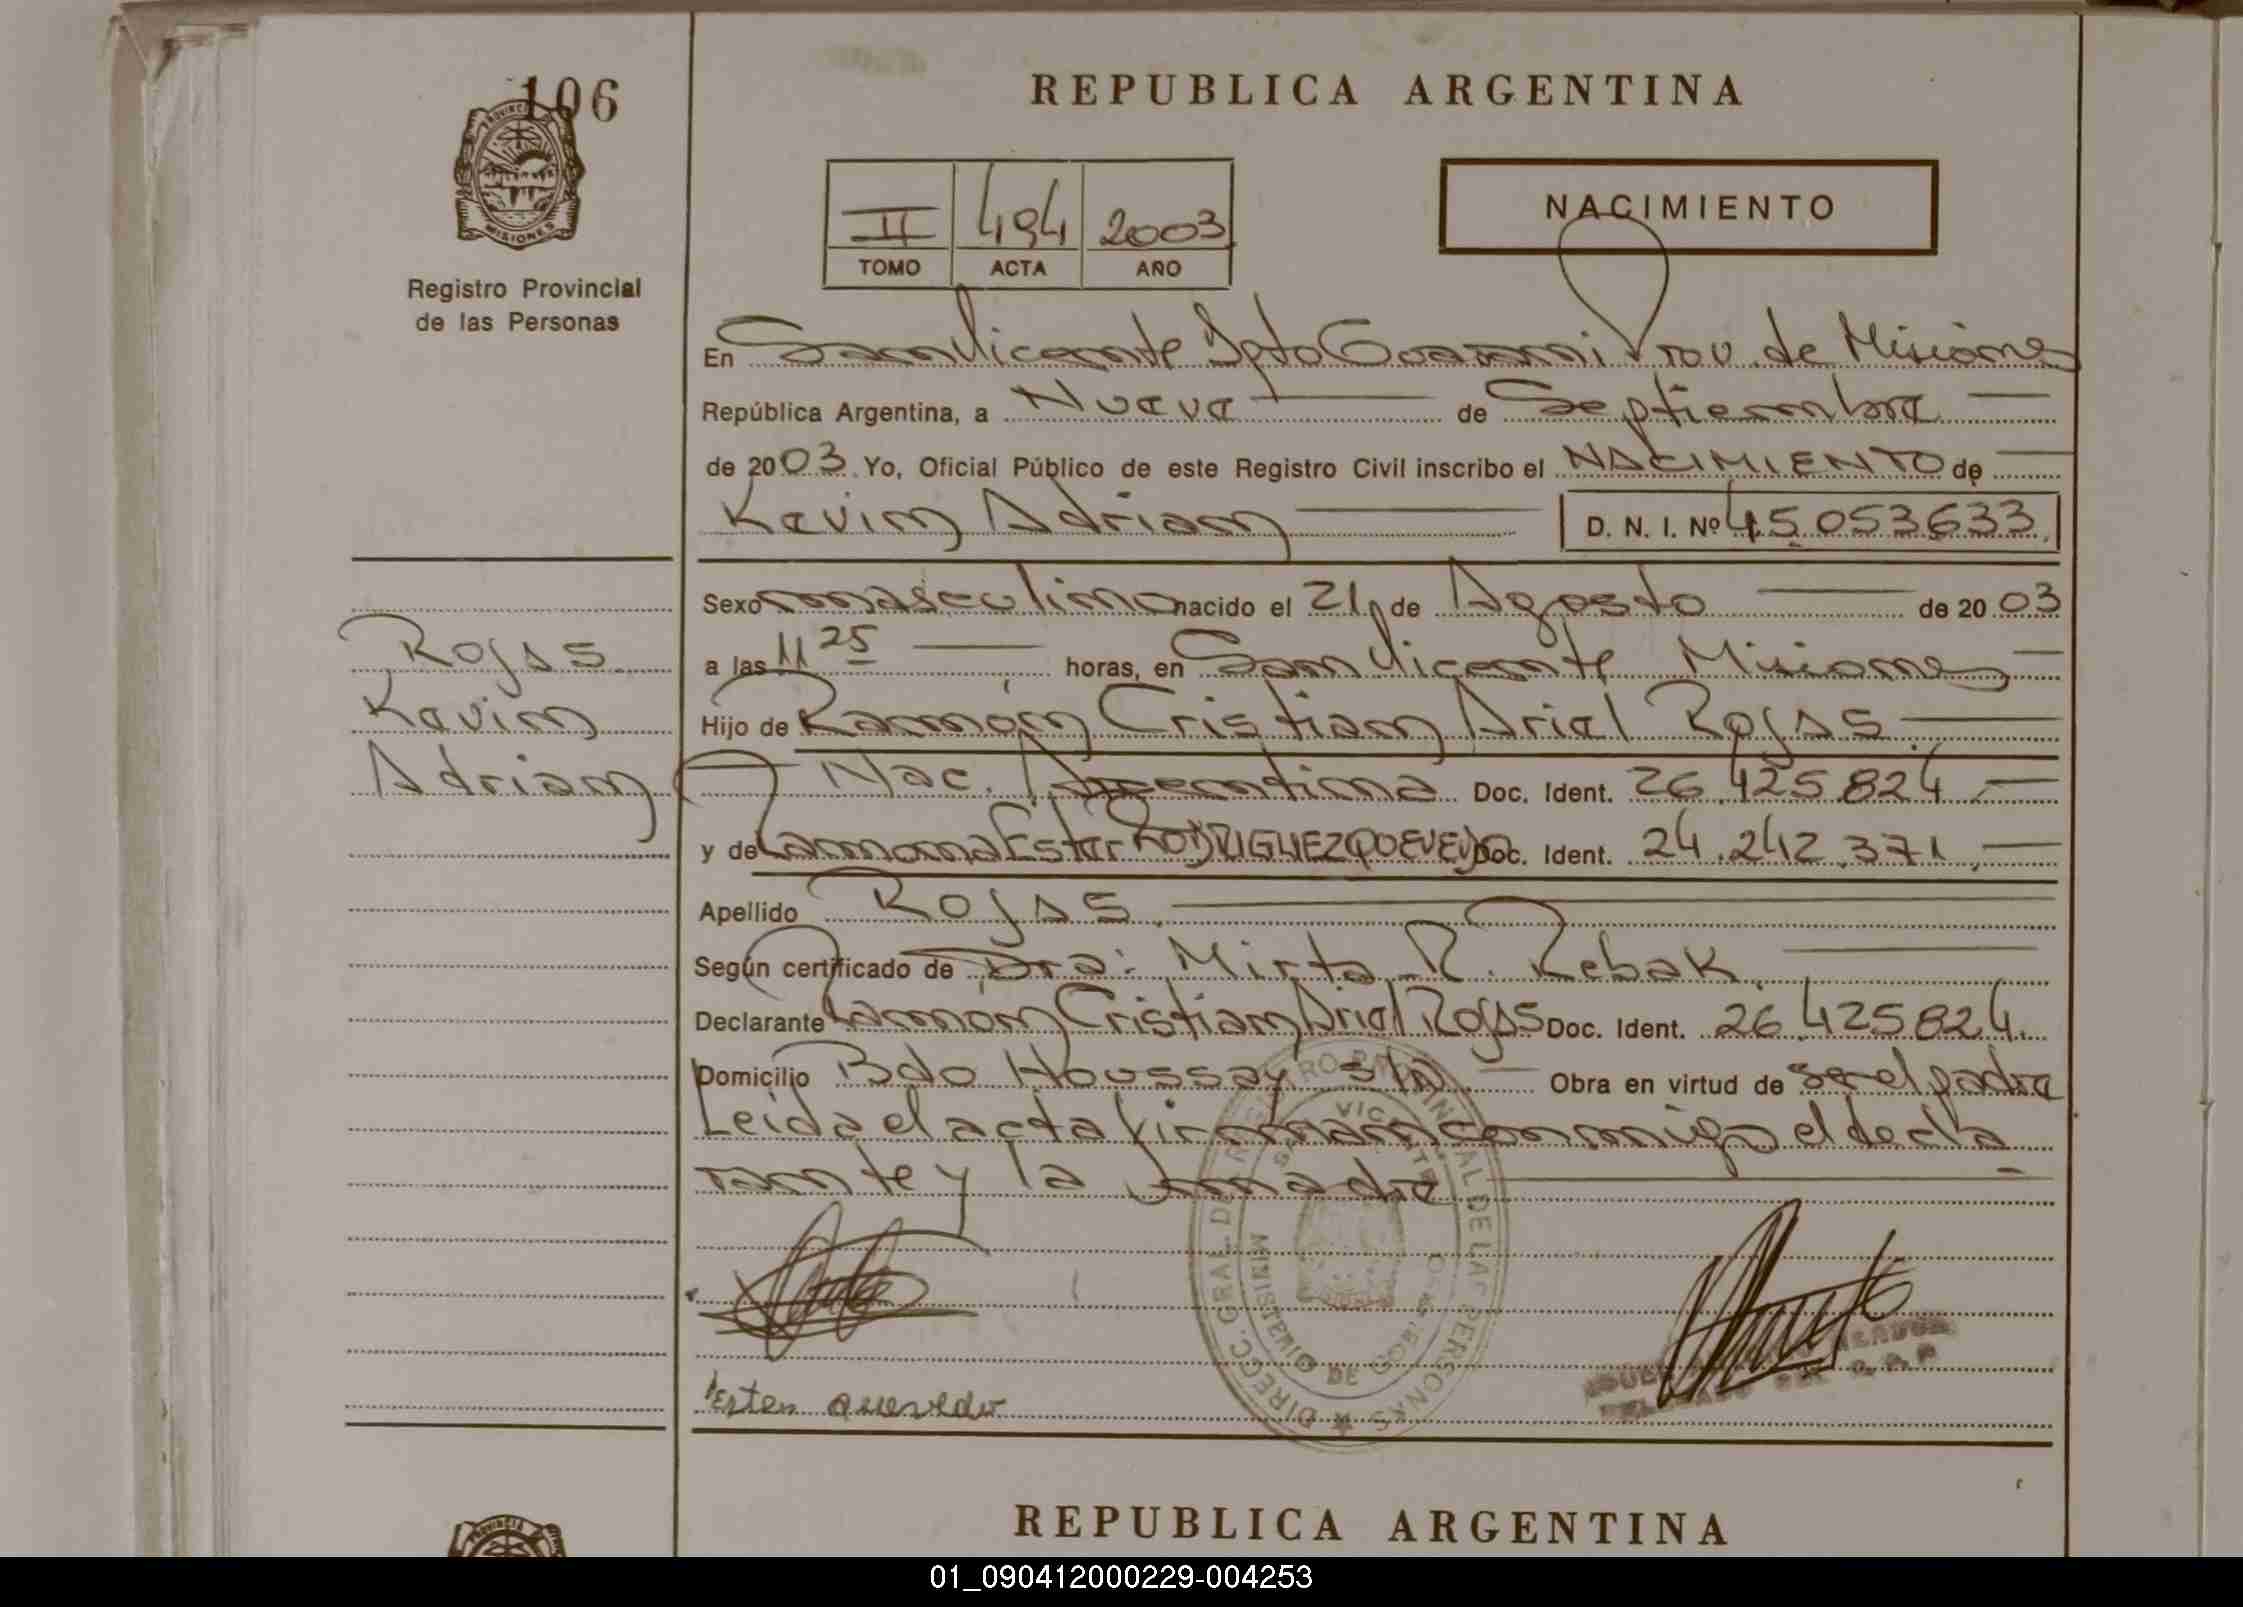 106
REPUBLICA ARGENTINA
PROVINCIA
MISIONES
Registro Provincial
de las Personas
II 494 2003
TOMO ACTA AÑO
NACIMIENTO
En San Vicente Dpto Guarani Prov. de Misiones
República Argentina, a Nueve de Septiembre
de 2003. Yo, Oficial Público de este Registro Civil inscribo el NACIMIENTO de
Kevin Adrian D. N. I. Nº 45.053.633
Sexo masculino nacido el 21 de Agosto de 2003
a las 11 25 horas, en San Vicente Misiones
Hijo de Ramón Cristian Ariel Rojas
Nac. Argentina Doc. Ident. 26.425.824
y de Ramona Ester RODRIGUEZ QUEVEDO Doc. Ident. 24.242.371
Apellido Rojas
Según certificado de Dra: Mirta R. Rebak
Declarante Ramón Cristian Ariel Rojas Doc. Ident. 26.425.824
Domicilio Bdo Houssay s/n Obra en virtud de ser el padre
Leida el acta firman conmigo el decla
rante y la madre
Rojas
Kevin
Adrian
DIRECC. GRAL. DEL REGISTRO PROVINCIAL DE LAS PERSONAS
SAN VICENTE
MINISTERIO DE GOBIERNO
Ester quevedo
REPUBLICA ARGENTINA
PROVINCIA
01_090412000229-004253